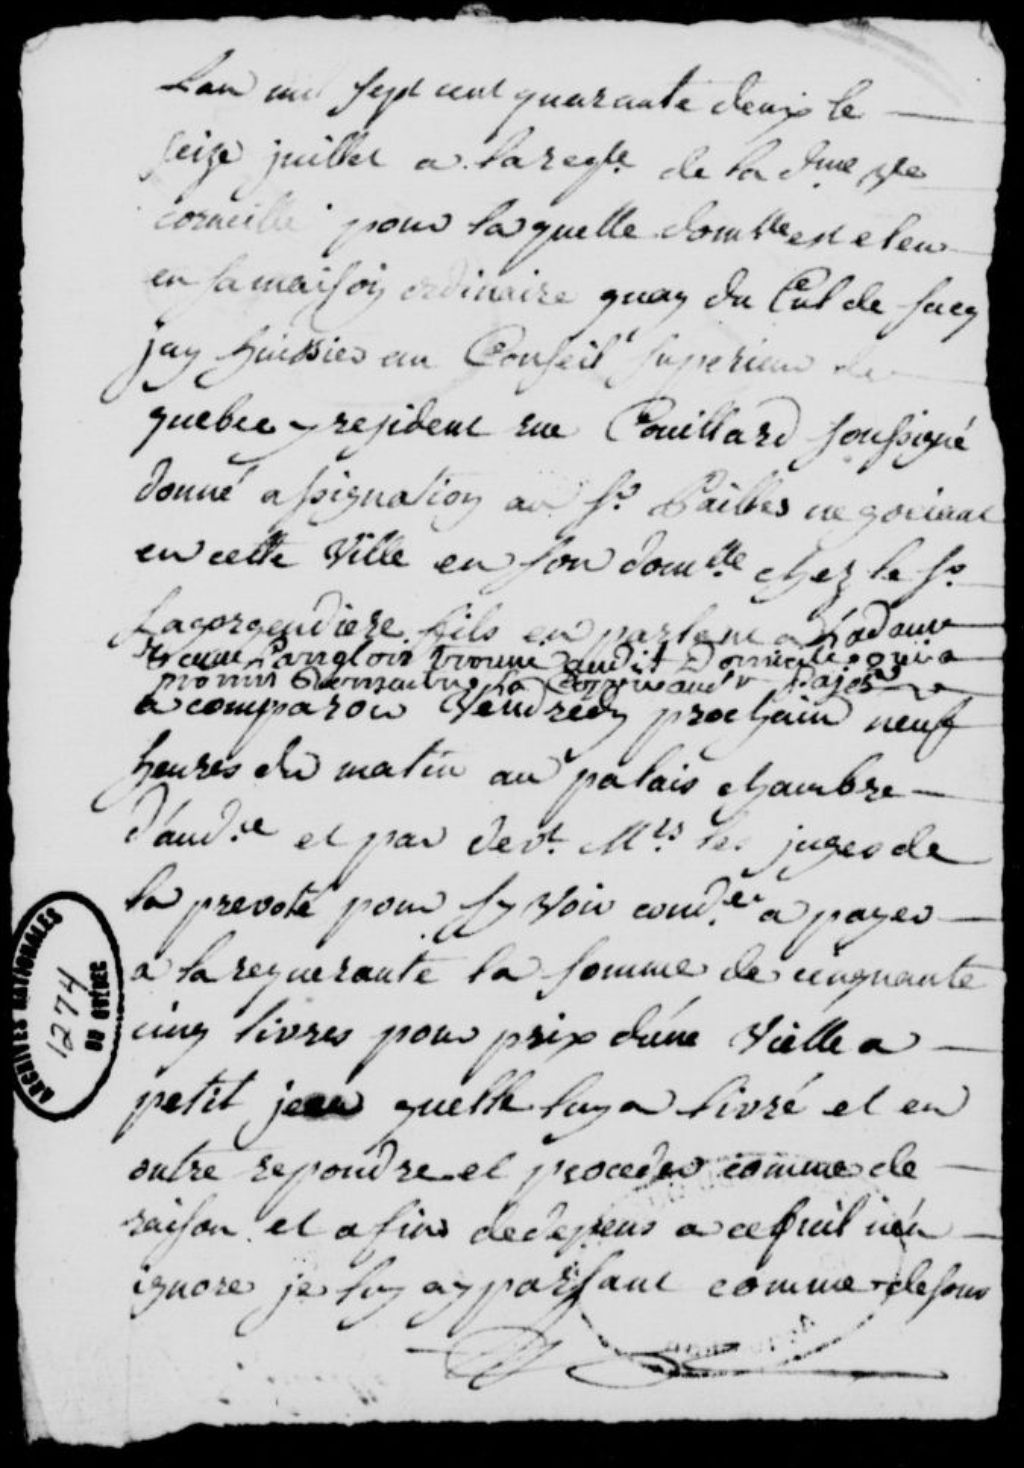 Lan mil sept cent quarante deux le
seize juillet a la reqte de la dme Ve
corneille pour laquelle domlle est eleu
en sa maison ordinaire quay du Cul de sacq
jay huissier au Conseil superieur de
quebec y resident rue Couillard soussigné
donné assignation au Sr negociant
en cette Ville en son domlle chez le Sr
Lagorgendiere fils en parlant a Ladame
Langlois trouvé audit Domicile qui a
promis
a comparoir Vendredy prochain neuf
heures du matin au palais chambre
d'audce et par devt Mrs les juges de
la prevoté pour sy Voir conder a payer
a la requerante la somme de cinquante
cinq livres pour prix d'une Vielle a
petit jeu quelle luy a livré et en
outre repondre et proceder comme de
raison et afin de depens a ce quil n'en
ignore je luy ay parlant comme dessus
ARCHIVES NATIONALES
1274
DU QUÉBEC